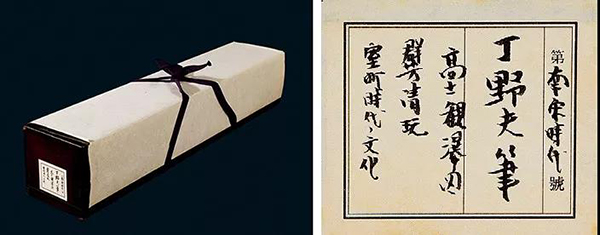 第南宋時代號
丁野夫筆
高士観瀑図
群芳清玩
室町時代ノ文化
丁野夫筆